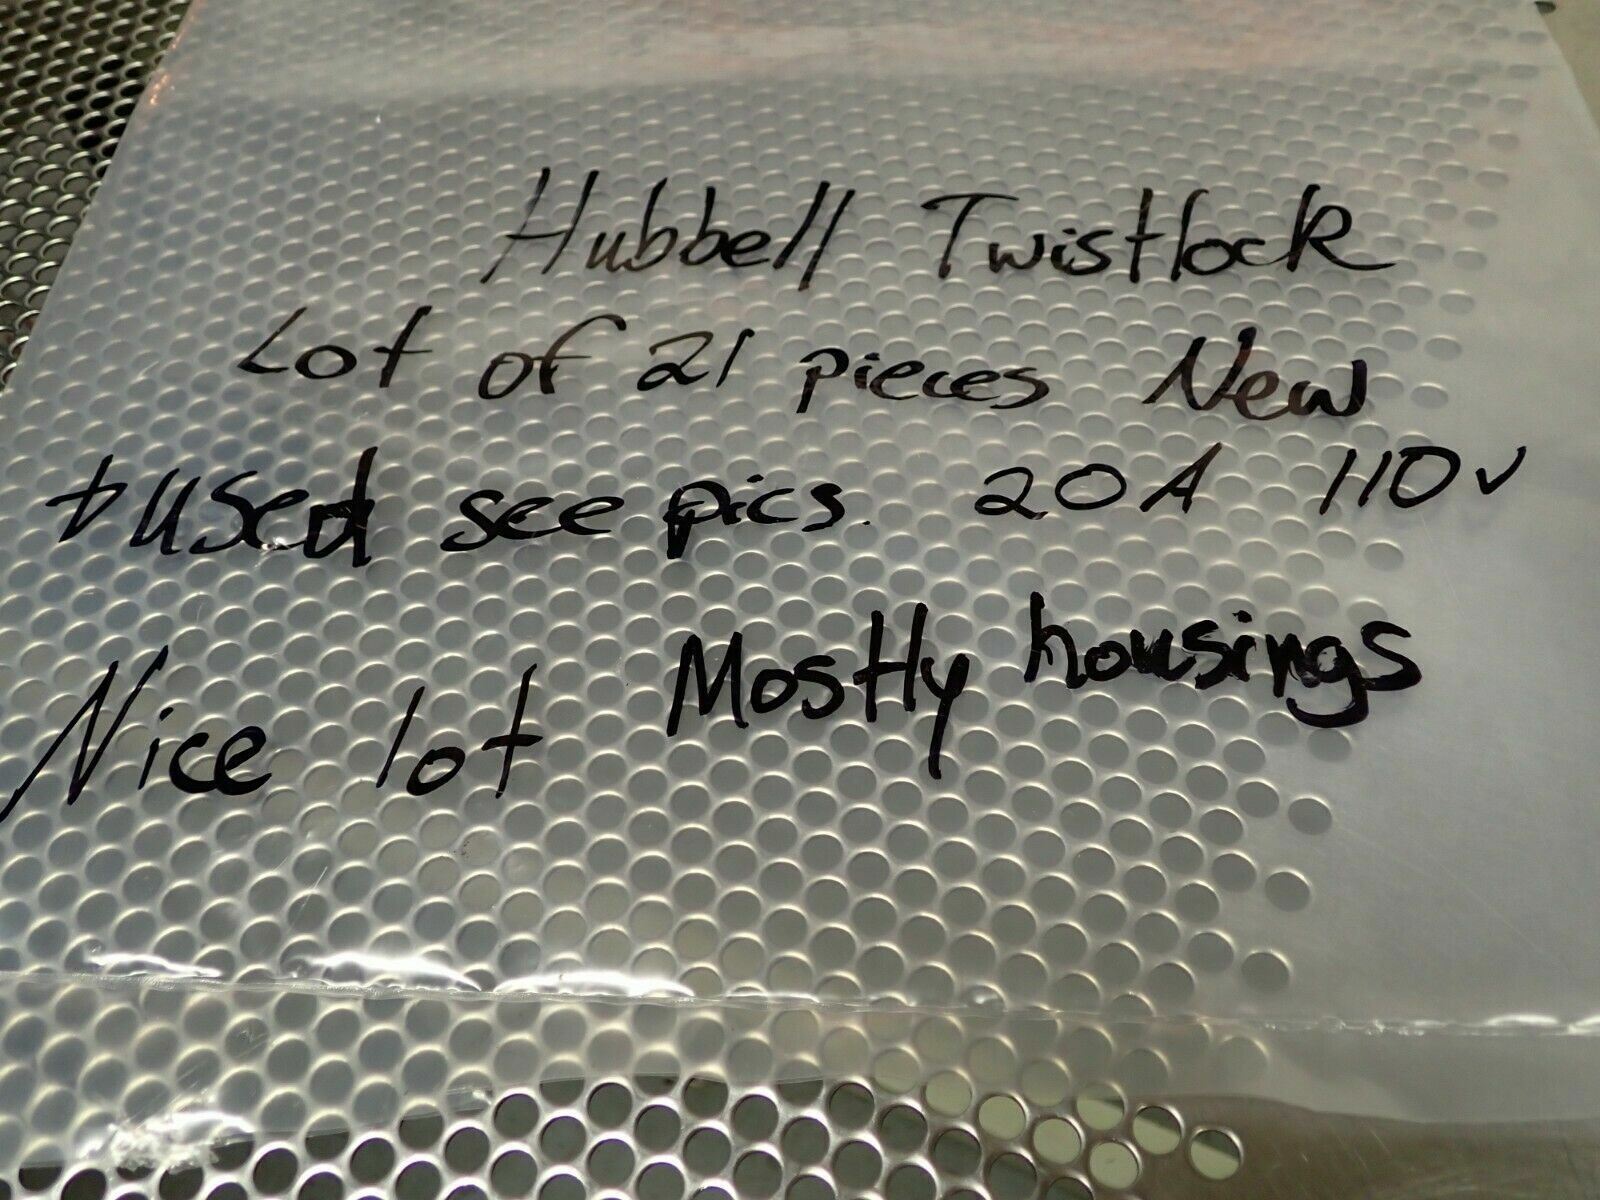 Hubbell Twistlock
Lot of 21 pieces New
+ used see pics. 20A 110v
Nice lot Mostly housings